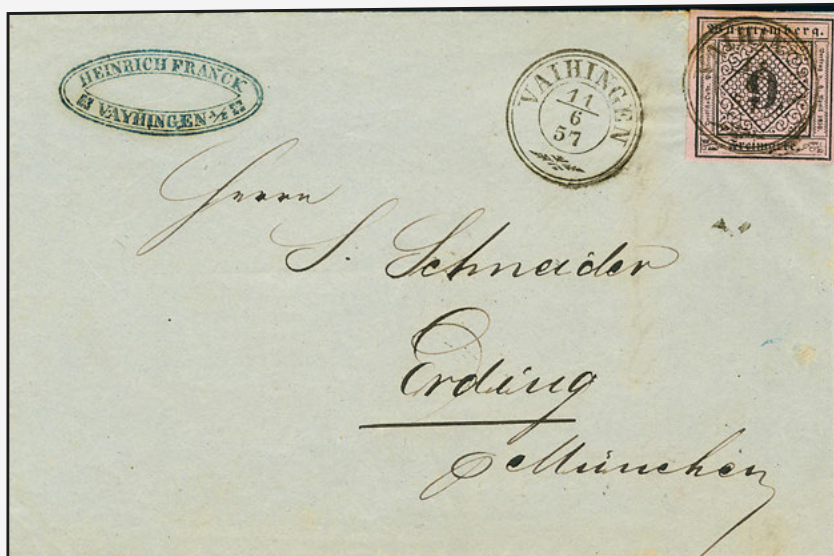 HEINRICH FRANCK
VAYHINGEN a/E
VAIHINGEN
11
6
57
Württemberg.
9
Freimarke.
Herrn
S. Schneider
Erding
p München